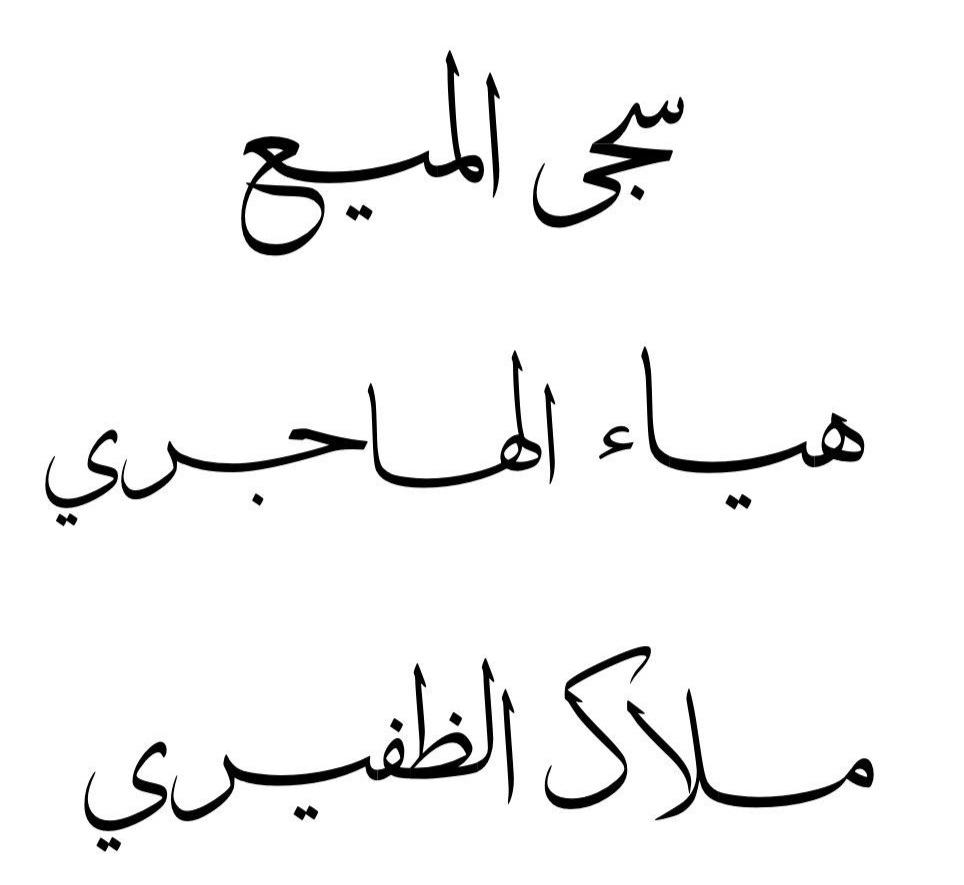 سجى الميع
هياء الهاجري
ملاك الظفيري